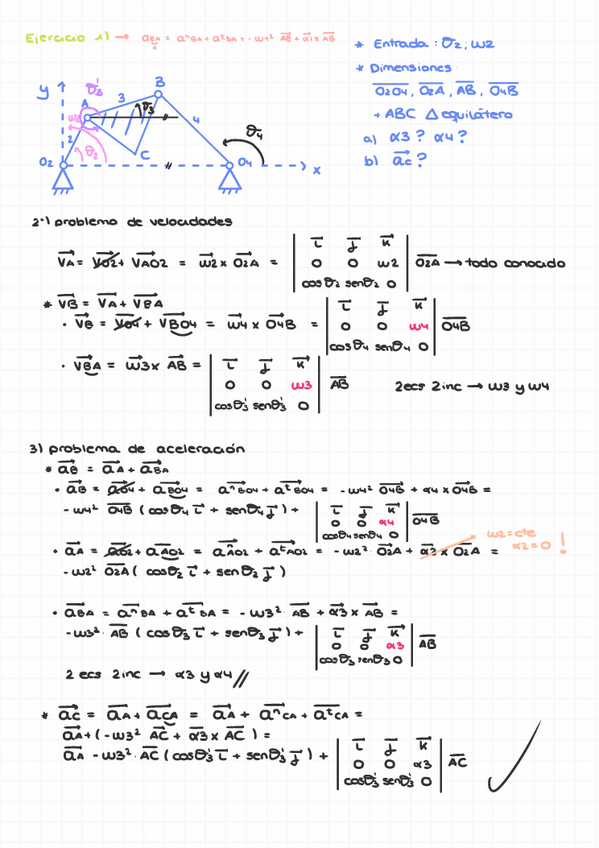 Ejercicio 1) → aBA = aⁿBA + aᵗBA = -ω1² AB + α1 x AB
* Entrada : θ2, ω2
* Dimensiones
O2O4, O2A, AB, O4B
+ ABC △ equilátero
a) α3? α4?
b) ac?
y
B
θ3'
3
A
θ3
4
ω2
2
θ2
C
θ4
O2
O4
x
2º) problema de velocidades
VA = VO2 + VAO2 = ω2 x O2A = | i j k | O2A → todo conocido
0 0 ω2
cosθ2 senθ2 0
* VB = VA + VBA
· VB = VO4 + VBO4 = ω4 x O4B = | i j k | O4B
0 0 ω4
cosθ4 senθ4 0
· VBA = ω3 x AB = | i j k | AB
0 0 ω3
cosθ3' senθ3' 0
2ecs 2inc → ω3 y ω4
3) problema de aceleración
* aB = aA + aBA
· aB = aO4 + aBO4 = aⁿBO4 + aᵗBO4 = -ω4² O4B + α4 x O4B =
-ω4² O4B (cosθ4 i + senθ4 j) + | i j k | O4B
0 0 α4
cosθ4 senθ4 0
ω2=cte
α2=0 !
· aA = aO2 + aAO2 = aⁿAO2 + aᵗAO2 = -ω2² O2A + α2 x O2A =
-ω2² O2A (cosθ2 i + senθ2 j)
· aBA = aⁿBA + aᵗBA = -ω3² AB + α3 x AB =
-ω3² AB (cosθ3 i + senθ3 j) + | i j k | AB
0 0 α3
cosθ3 senθ3 0
2 ecs 2inc → α3 y α4 //
* ac = aA + aCA = aA + aⁿCA + aᵗCA =
aA + (-ω3² AC + α3 x AC) =
aA - ω3² AC (cosθ3' i + senθ3' j) + | i j k | AC
0 0 α3
cosθ3' senθ3' 0